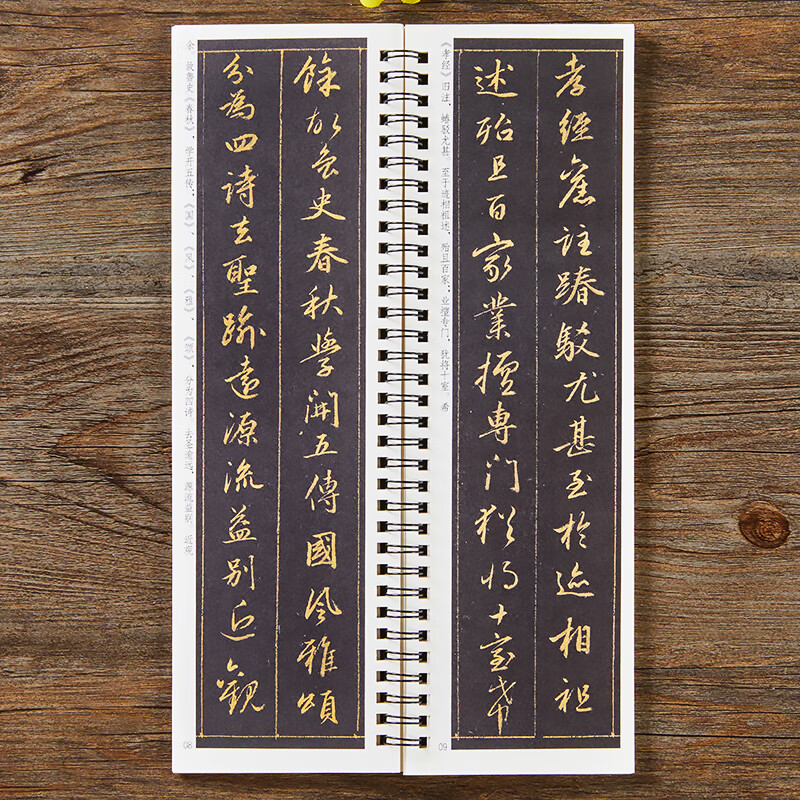 餘故魯史春秋學開五傳國風雅頌
分為四詩去聖逾遠源流益別近觀
余。故鲁史《春秋》，学开五传；《国》、《风》、《雅》、《颂》，分为四诗。去圣逾远，源流益别。近观
08
孝經舊註踳駁尤甚至於迹相祖
述殆且百家業擅專門猶將十室希
《孝经》旧注，踳驳尤甚。至于迹相祖述，殆且百家；业擅专门，犹将十室。希
09